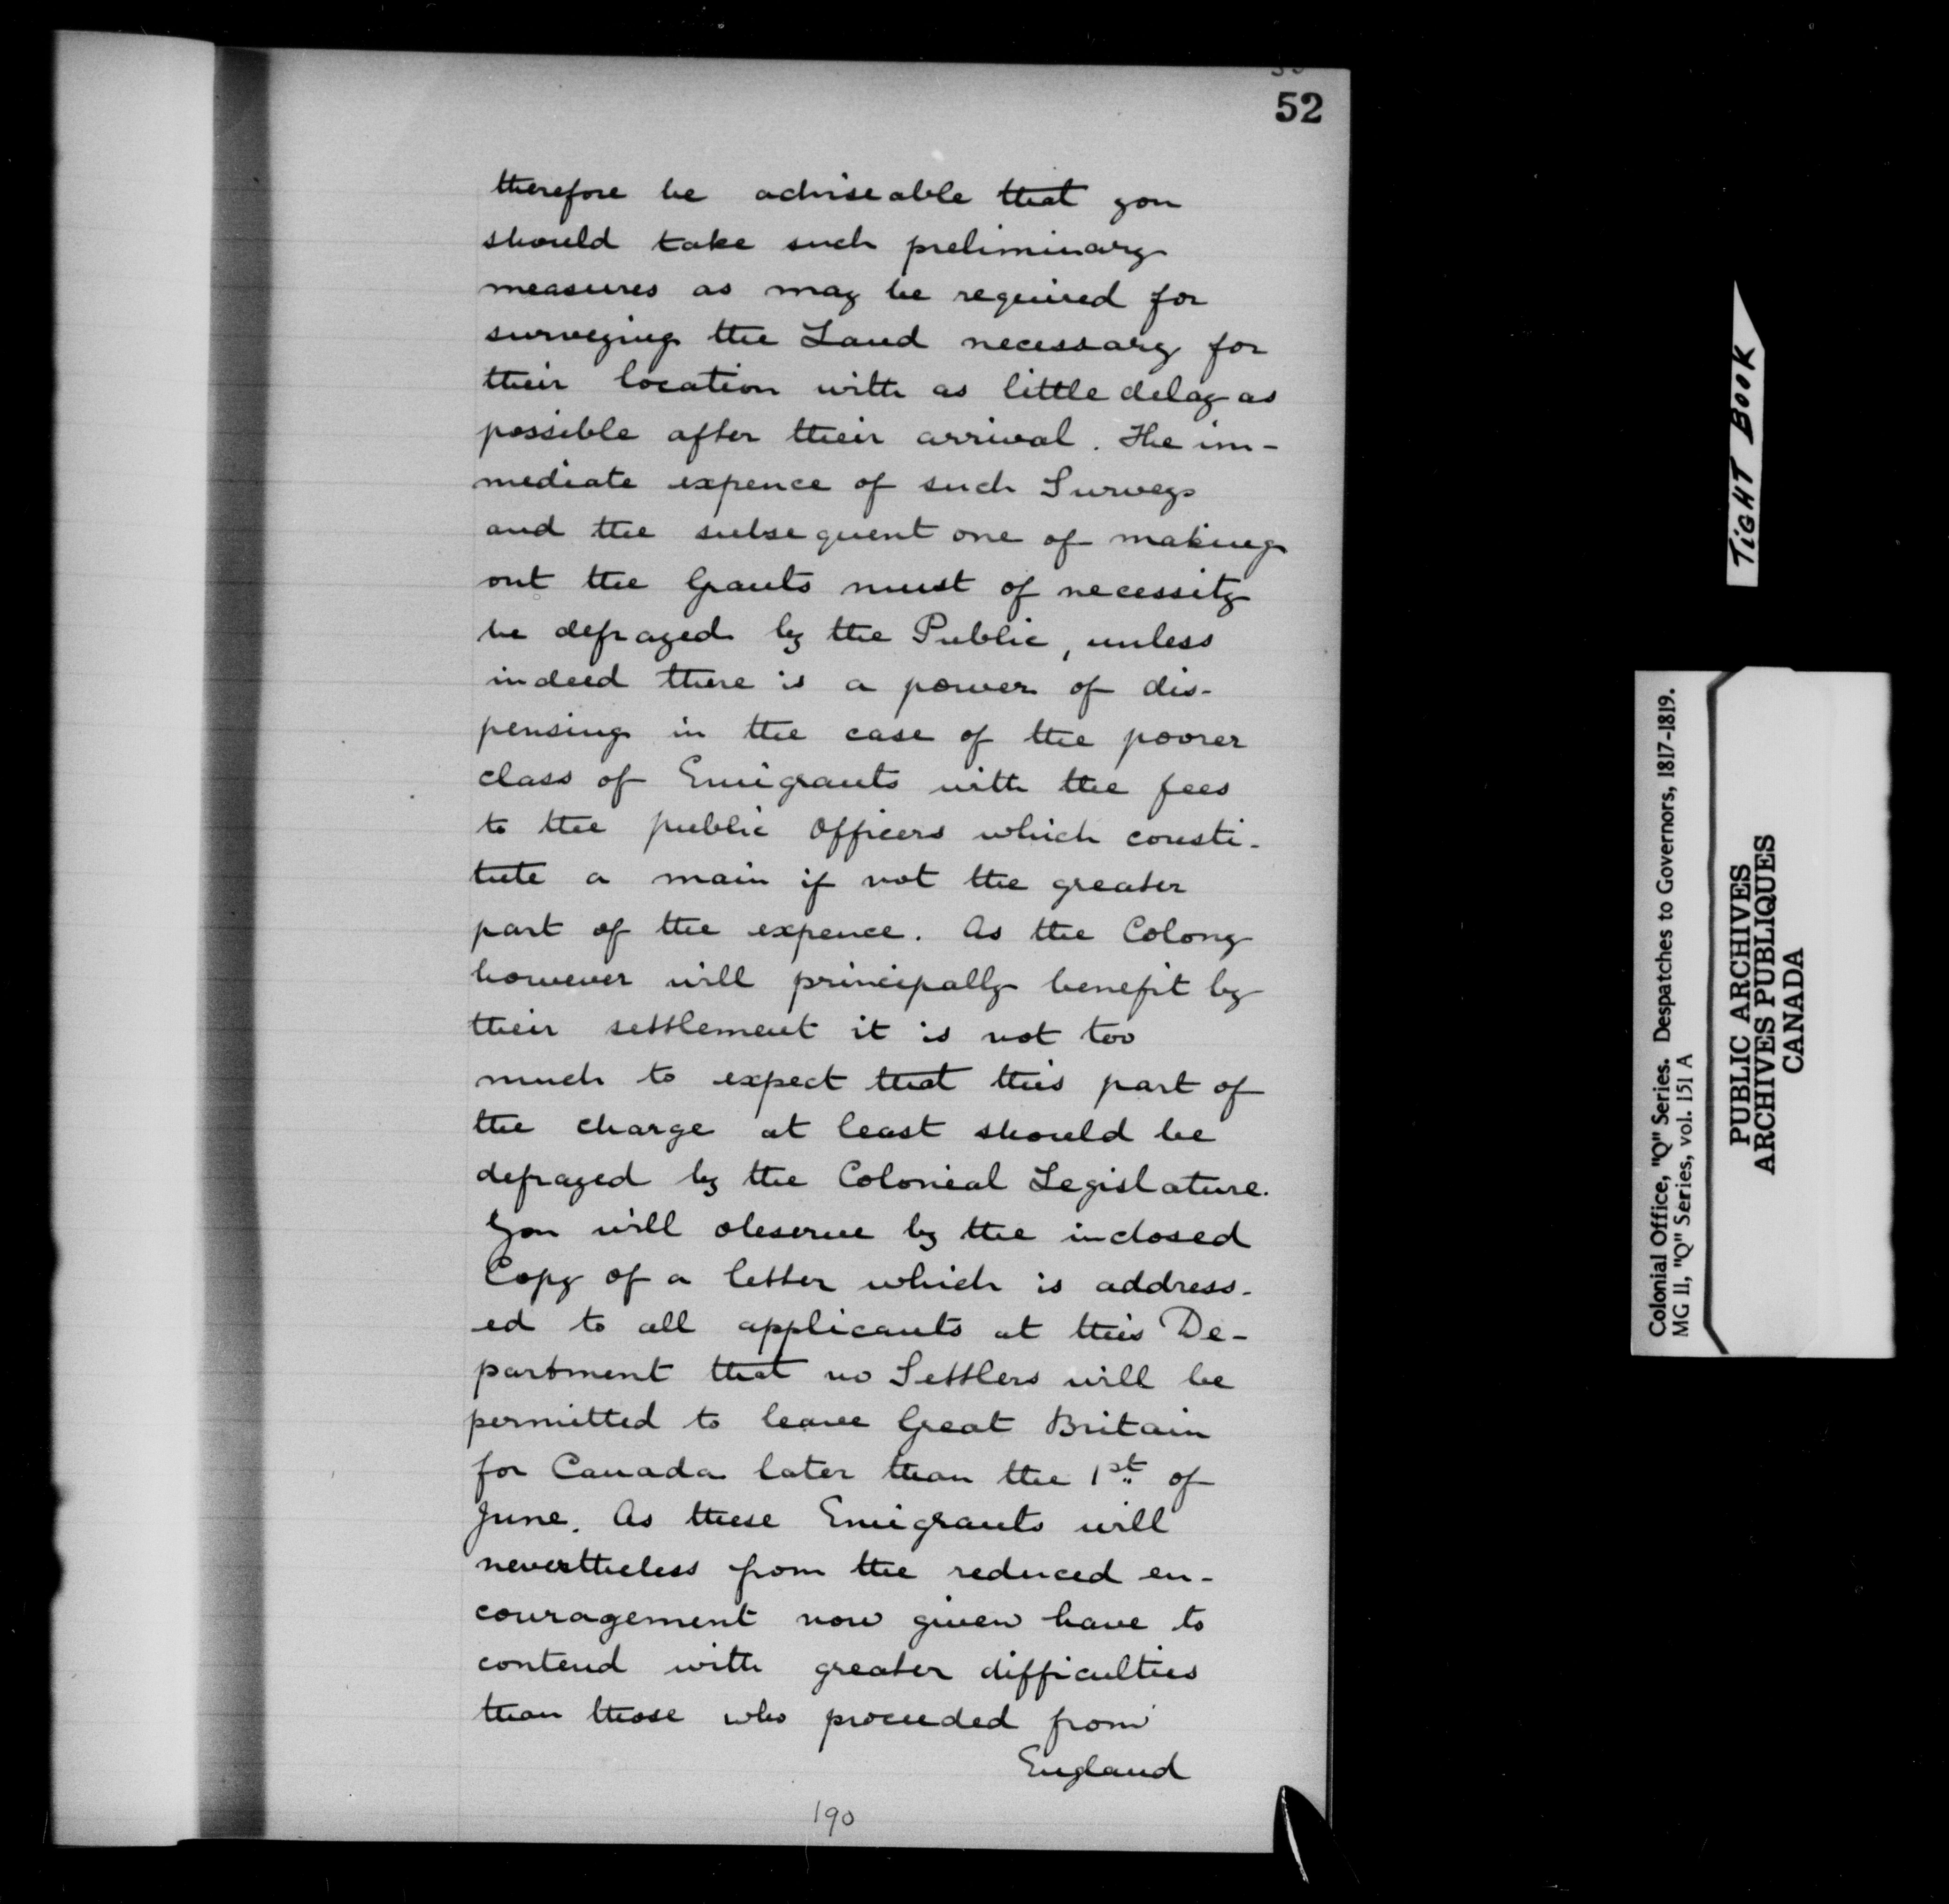 52
therefore be adviseable that you
should take such preliminary
measures as may be required for
surveying the Land necessary for
their location with as little delay as
possible after their arrival. The im-
mediate expence of such Surveys
and the subsequent one of making
out the Grants must of necessity
be defrayed by the Public, unless
indeed there is a power of dis-
pensing in the case of the poorer
class of Emigrants with the fees
to the public Officers which consti-
tute a main if not the greater
part of the expence. As the Colony
however will principally benefit by
their settlement it is not too
much to expect that this part of
the charge at least should be
defrayed by the Colonial Legislature.
You will observe by the inclosed
Copy of a letter which is address-
ed to all applicants at this De-
partment that no Settlers will be
permitted to leave Great Britain
for Canada later than the 1st of
June. As these Emigrants will
nevertheless from the reduced en-
couragement now given have to
contend with greater difficulties
than those who proceeded from
England
190
TIGHT BOOK
Colonial Office, "Q" Series. Despatches to Governors, 1817-1819.
MG 11, "Q" Series, vol. 151 A
PUBLIC ARCHIVES
ARCHIVES PUBLIQUES
CANADA